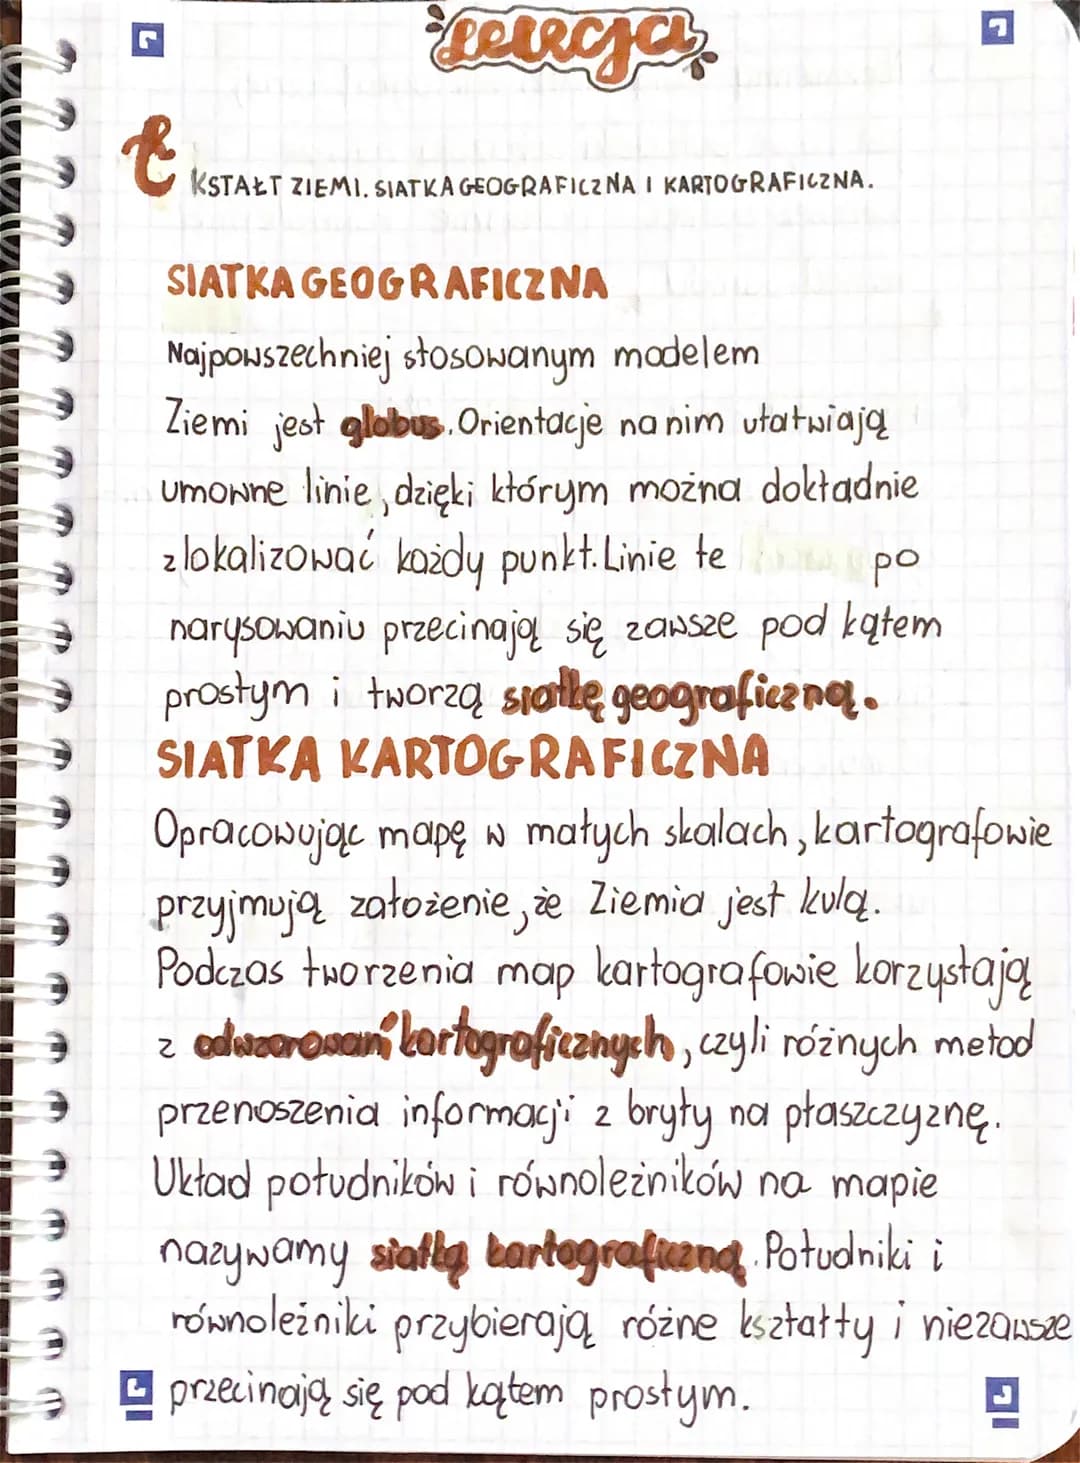 Lekcja
T
KSTAŁT ZIEMI. SIATKA GEOGRAFICZNA I KARTOGRAFICZNA.
SIATKA GEOGRAFICZNA
Najpowszechniej stosowanym modelem
Ziemi jest globus. Orientacje na nim ułatwiają
umowne linie, dzięki którym można dokładnie
zlokalizować każdy punkt. Linie te po
narysowaniu przecinają się zawsze pod kątem
prostym i tworzą siatkę geograficzną.
SIATKA KARTOGRAFICZNA
Opracowując mapę w małych skalach, kartografowie
przyjmują założenie, że Ziemia jest kulą.
Podczas tworzenia map kartografowie korzystają
z odwzorowań kartograficznych, czyli różnych metod
przenoszenia informacji z bryły na płaszczyznę.
Układ południków i równoleżników na mapie
nazywamy siatką kartograficzną. Południki i
równoleżniki przybierają różne kształty i niezawsze
przecinają się pod kątem prostym.